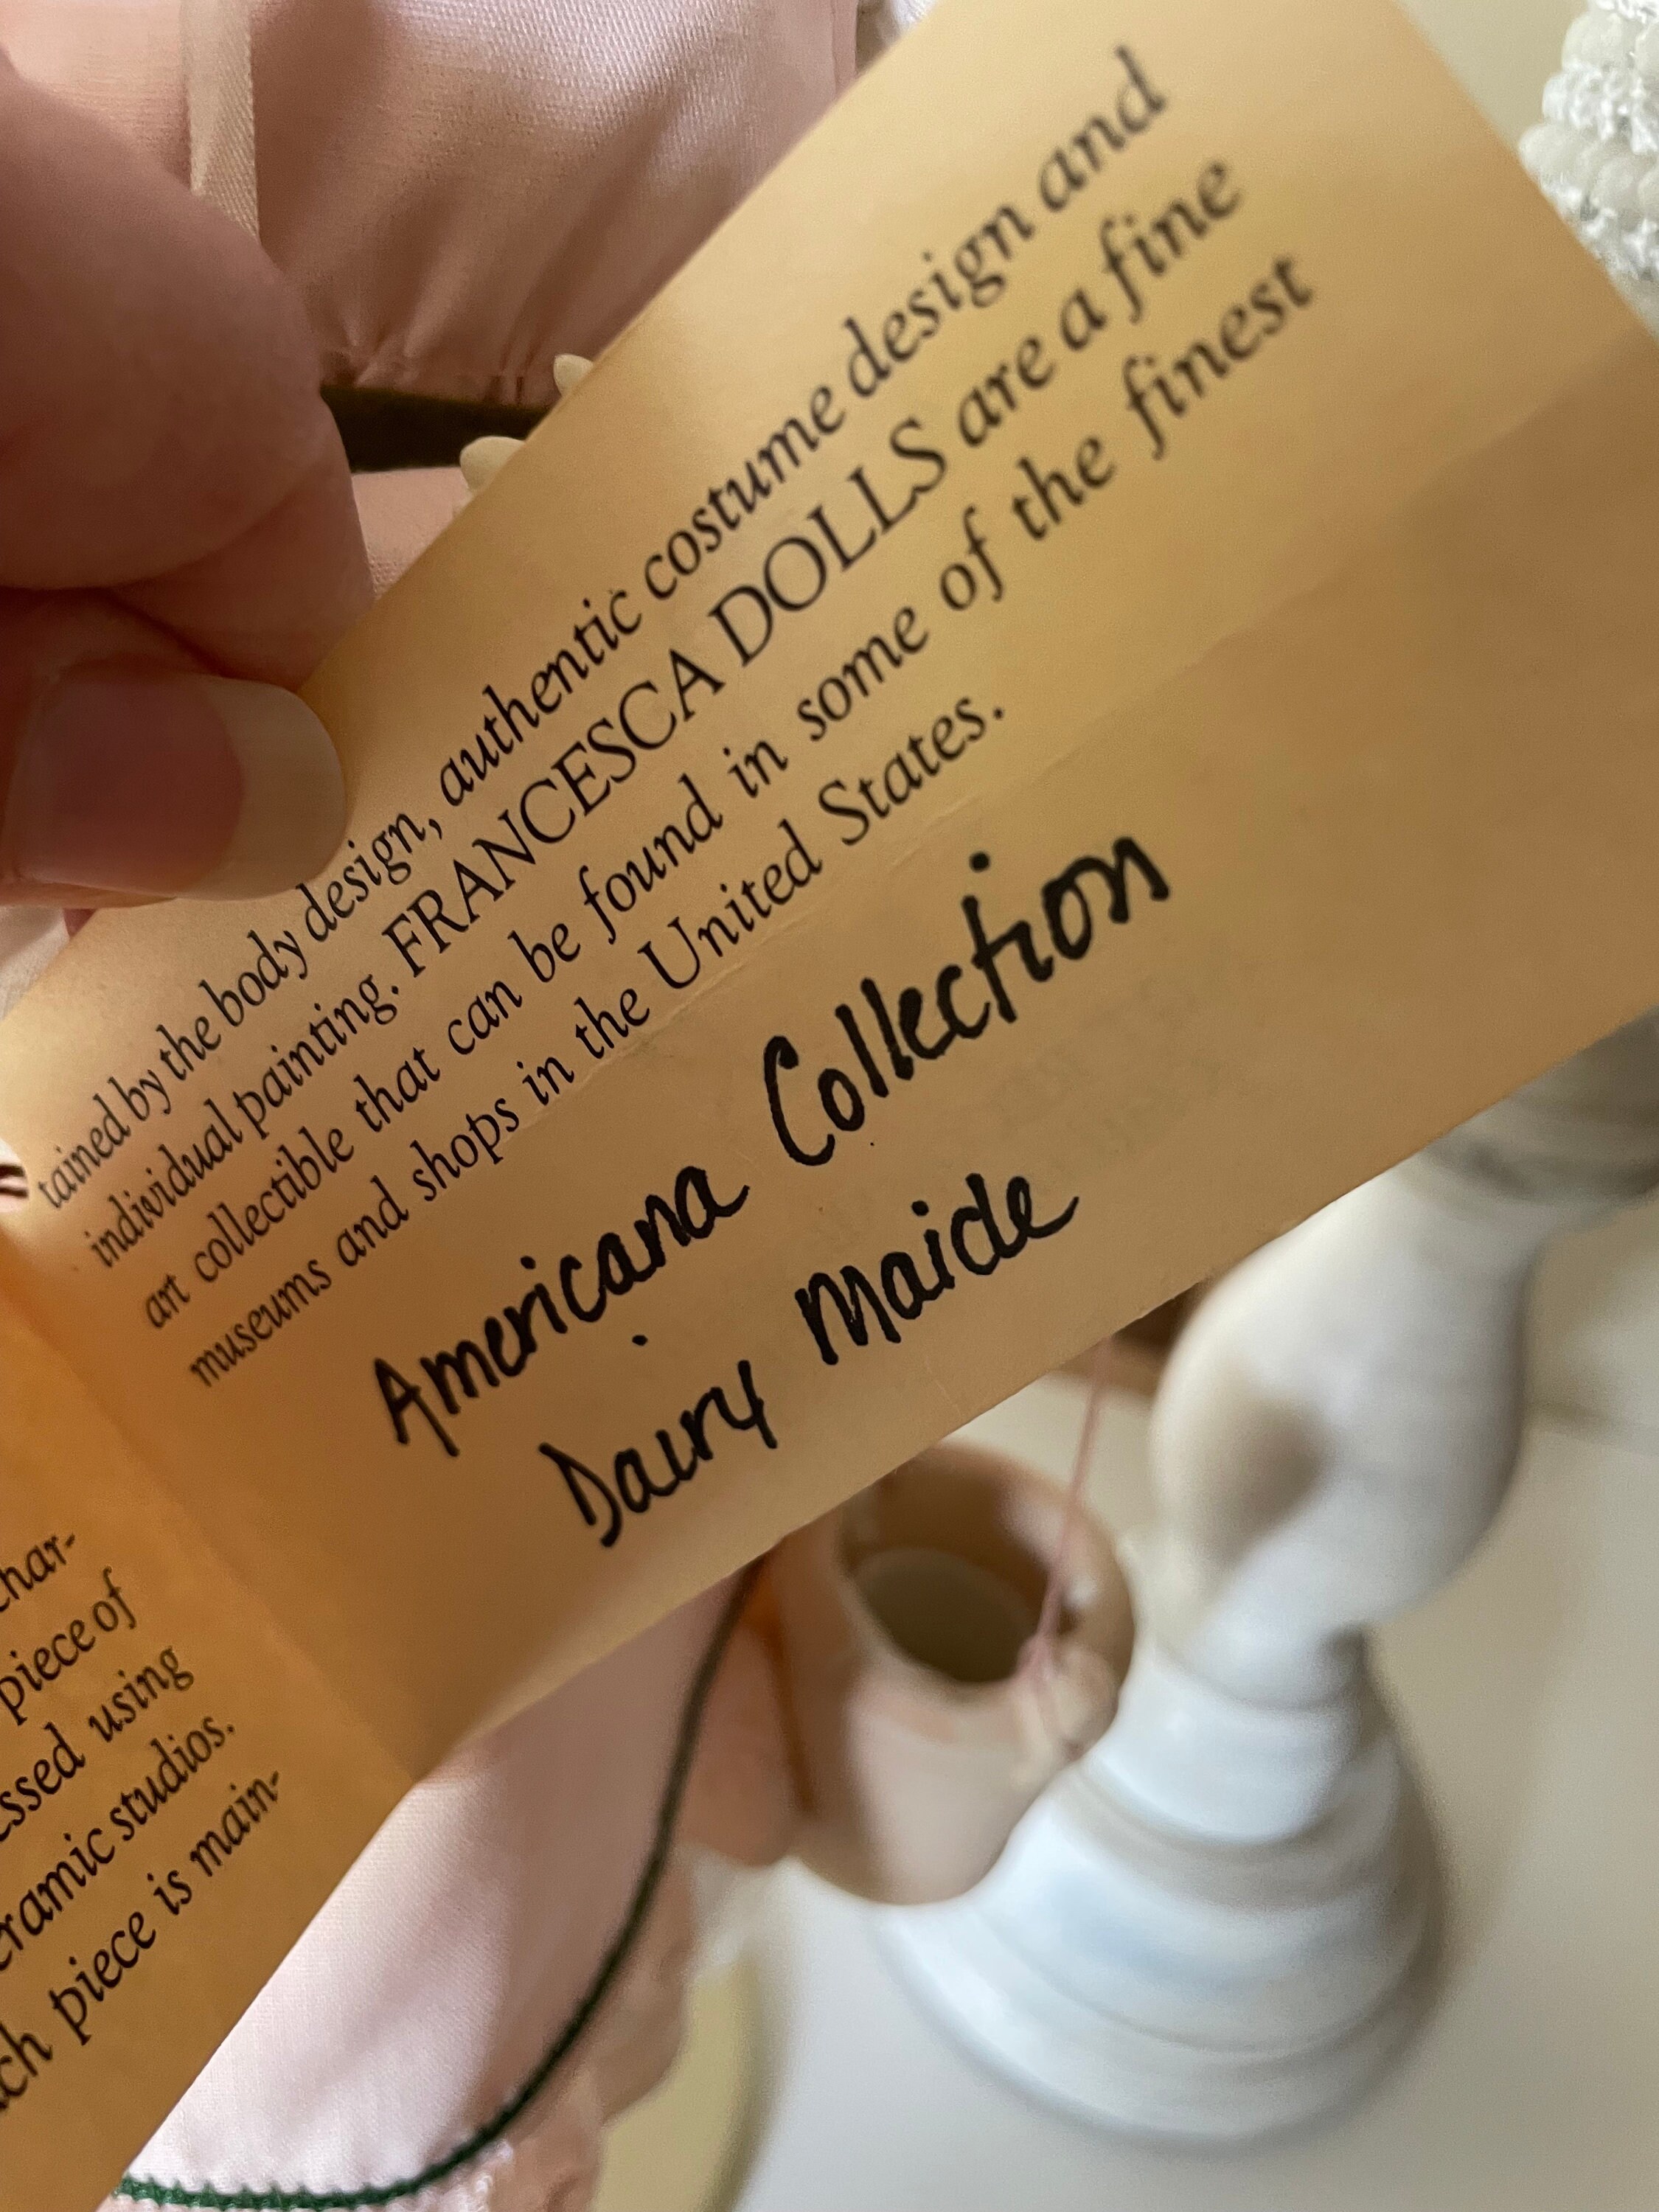 char-
piece of
essed using
eramic studios.
ch piece is main-
tained by the body design, authentic costume design and
individual painting. FRANCESCA DOLLS are a fine
art collectible that can be found in some of the finest
museums and shops in the United States.
Americana Collection
Dairy Maide